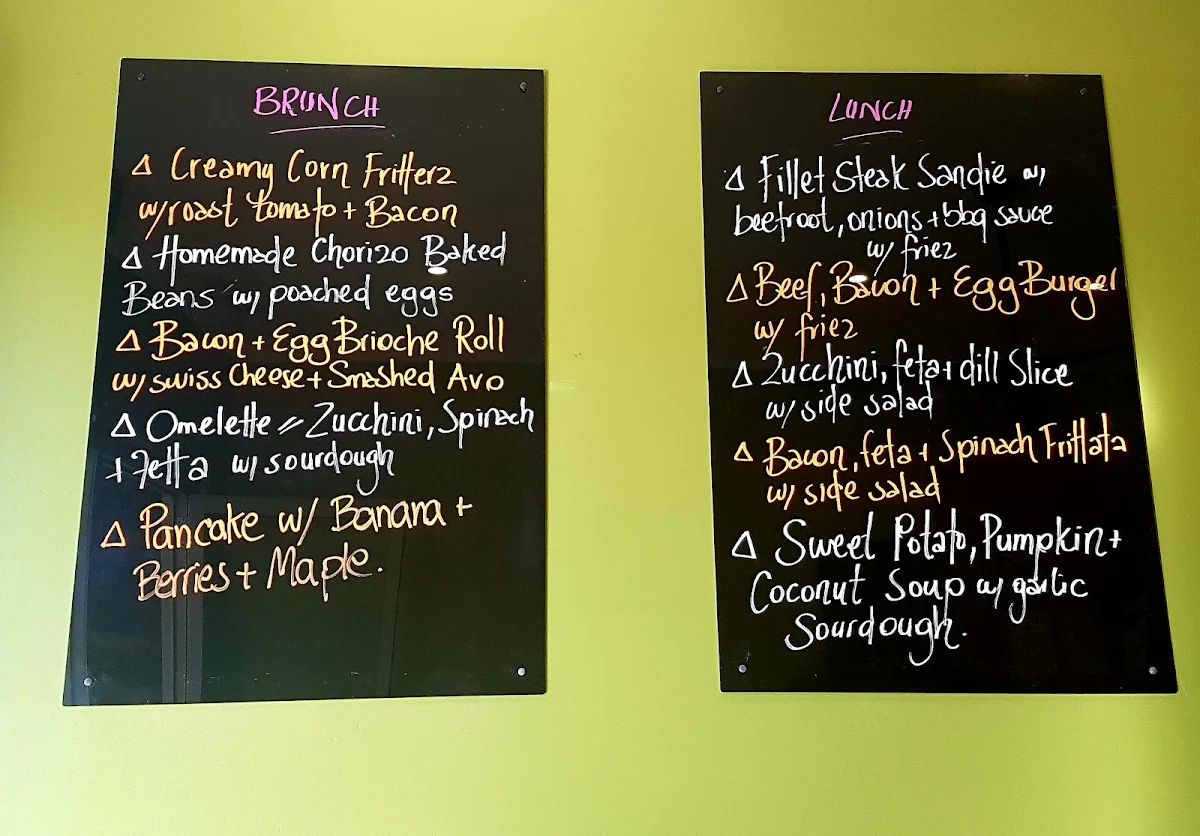 BRUNCH
Δ Creamy Corn Fritterz
w/roast tomato + Bacon
Δ Homemade Chorizo Baked
Beans w/ poached eggs
Δ Bacon + Egg Brioche Roll
w/ swiss Cheese + Smashed Avo
Δ Omelette // Zucchini, Spinach
+ Fetta w/ sourdough
Δ Pancake w/ Banana +
Berries + Maple.
LUNCH
Δ Fillet Steak Sandie w/
beetroot, onions + bbq sauce
w/ friez
Δ Beef, Bacon + Egg Burger
w/ friez
Δ Zucchini, feta + dill Slice
w/ side salad
Δ Bacon, feta + Spinach Frittata
w/ side salad
Δ Sweet Potato, Pumpkin +
Coconut Soup w/ garlic
Sourdough.